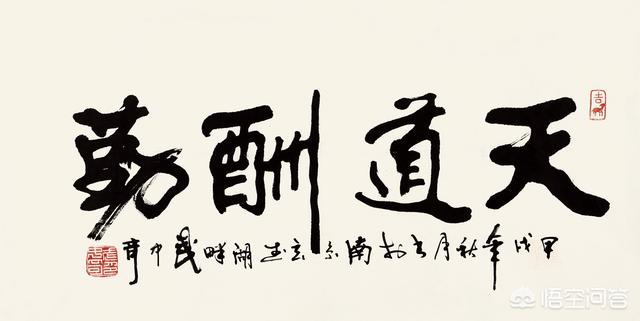 天道酬勤
甲戌年秋月书於南京玄武湖畔武中奇
吉
悟空问答